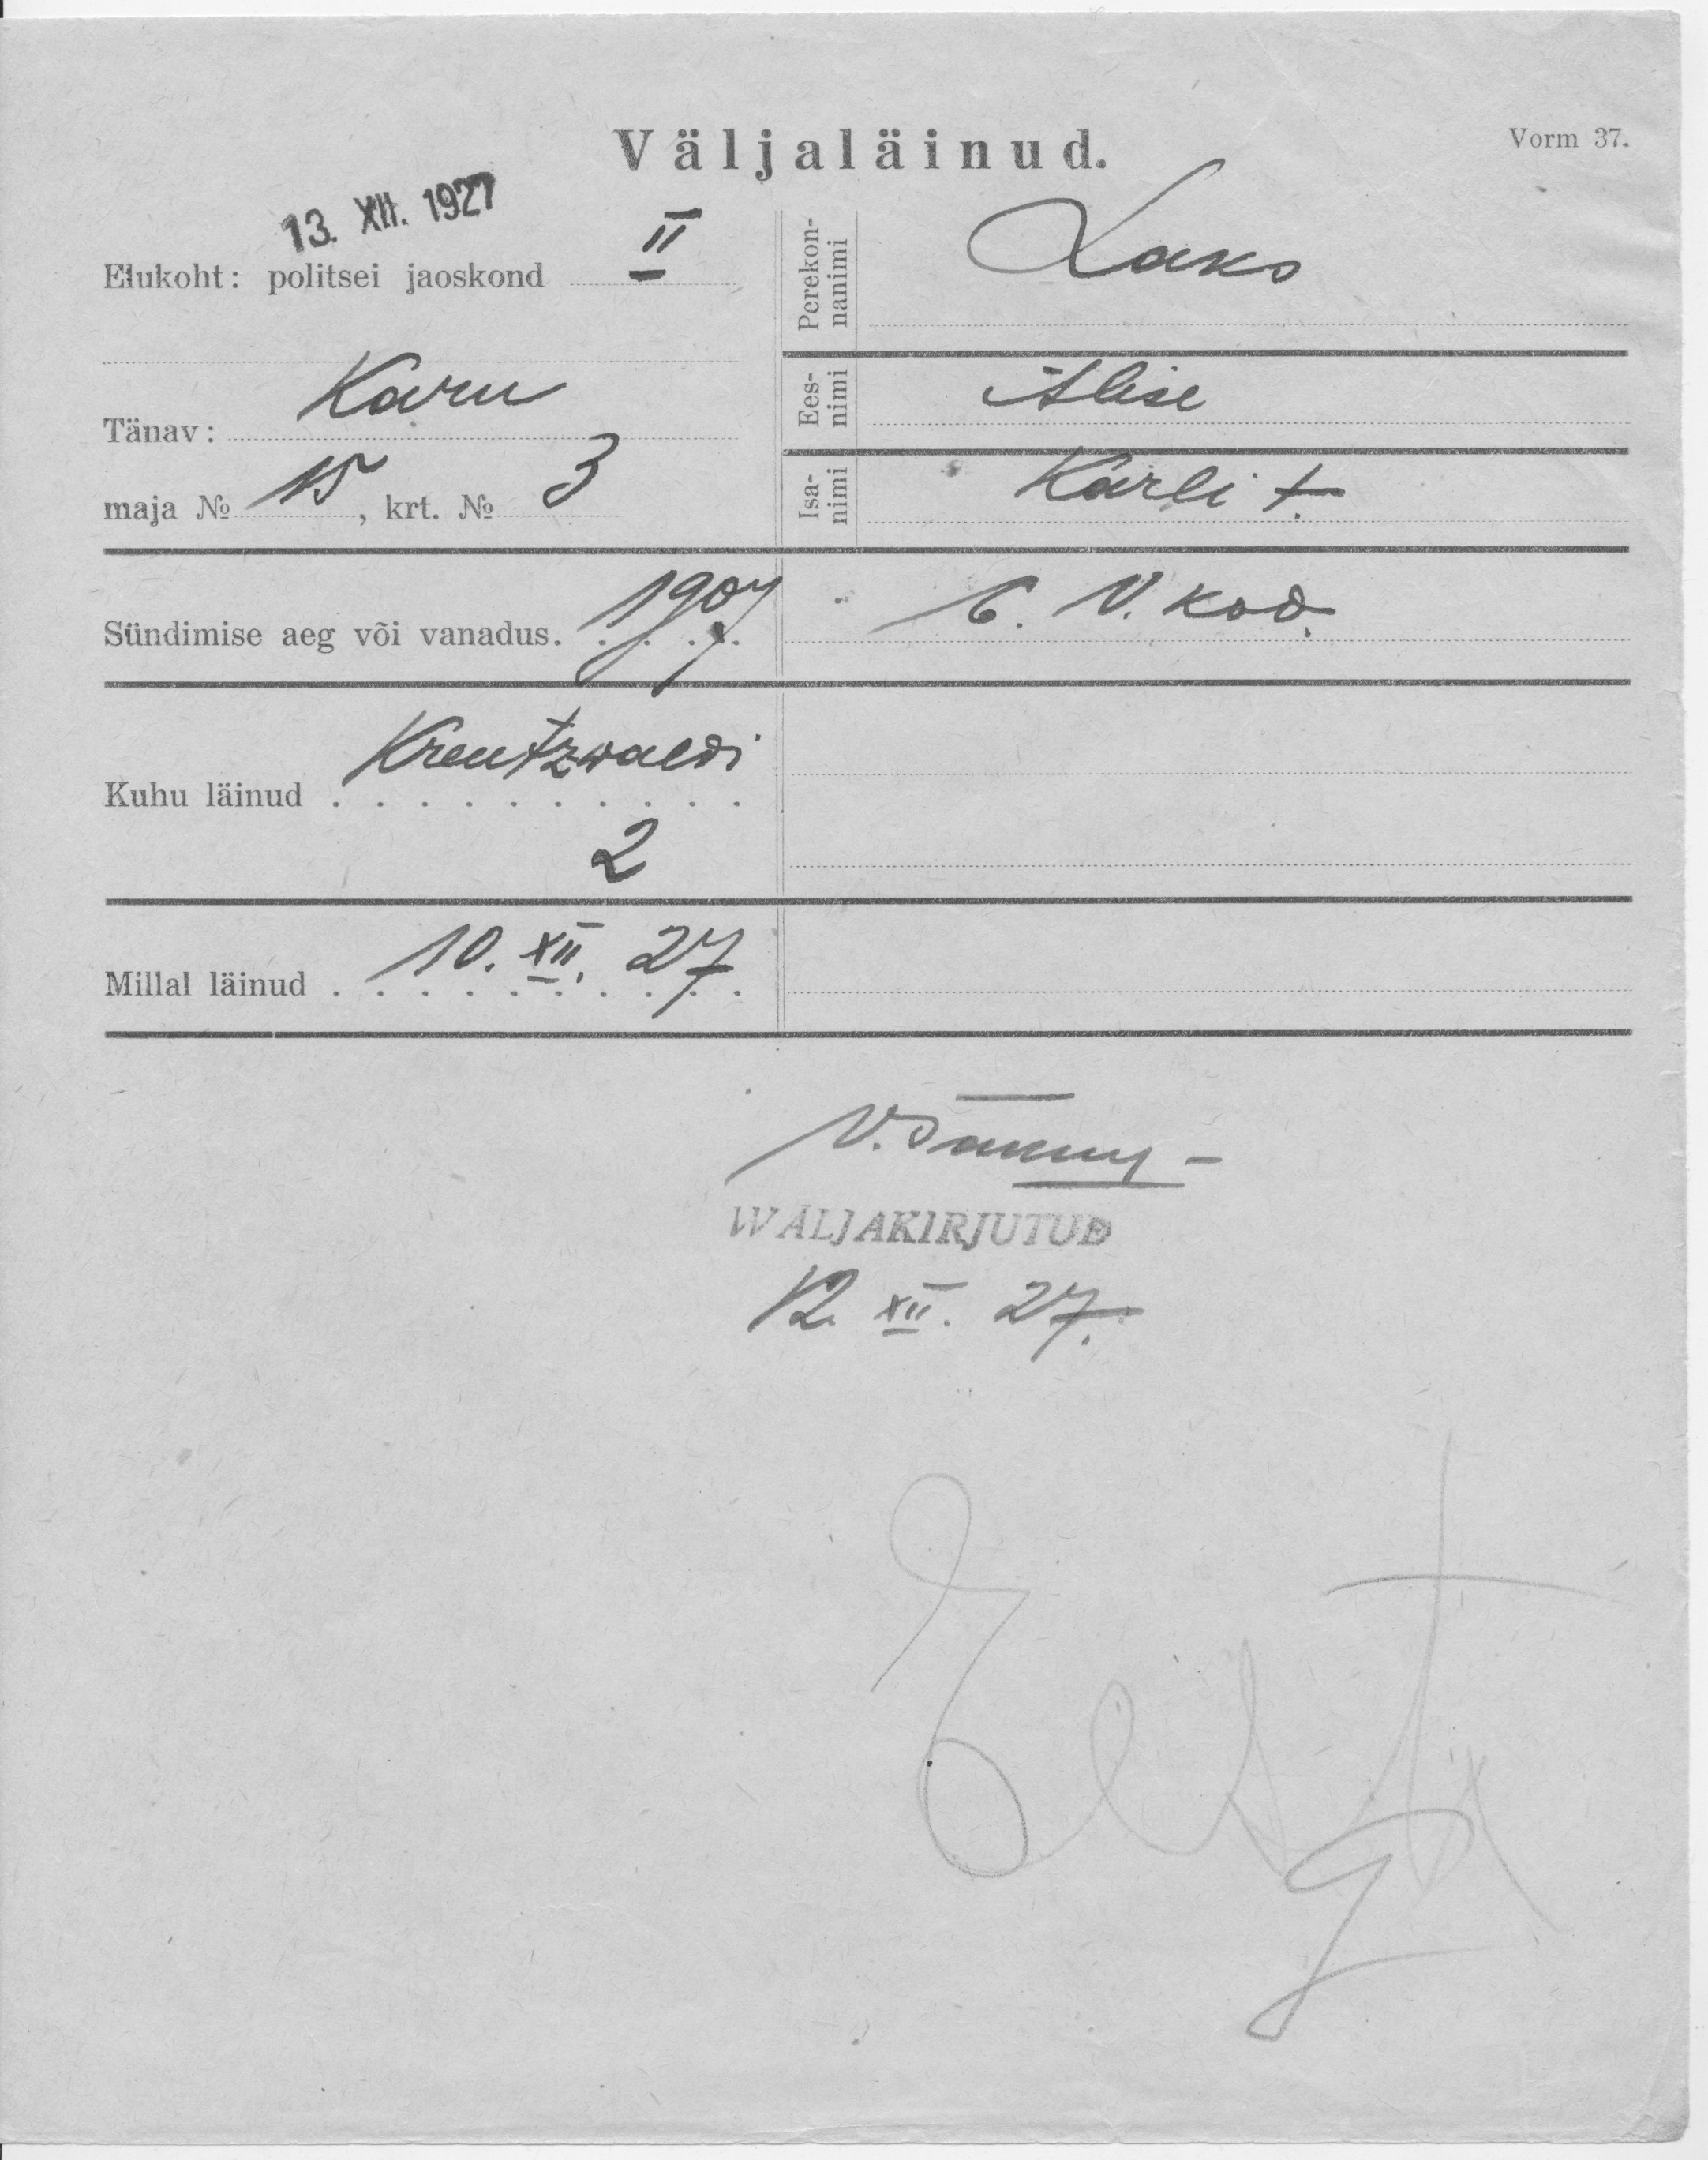 Väljaläinud.
Vorm 37.
13. XII. 1927
Elukoht: politsei jaoskond II
Perekon-
nanimi
Laks
Tänav: Karu
Ees-
nimi
Alise
maja № 15, krt. № 3
Isa-
nimi
Karli t.
Sündimise aeg või vanadus. 1907
6. V. kod.
Kuhu läinud Kreutzwaldi
2
Millal läinud 10. XII. 27
WÄLJAKIRJUTUD
12. XII. 27.